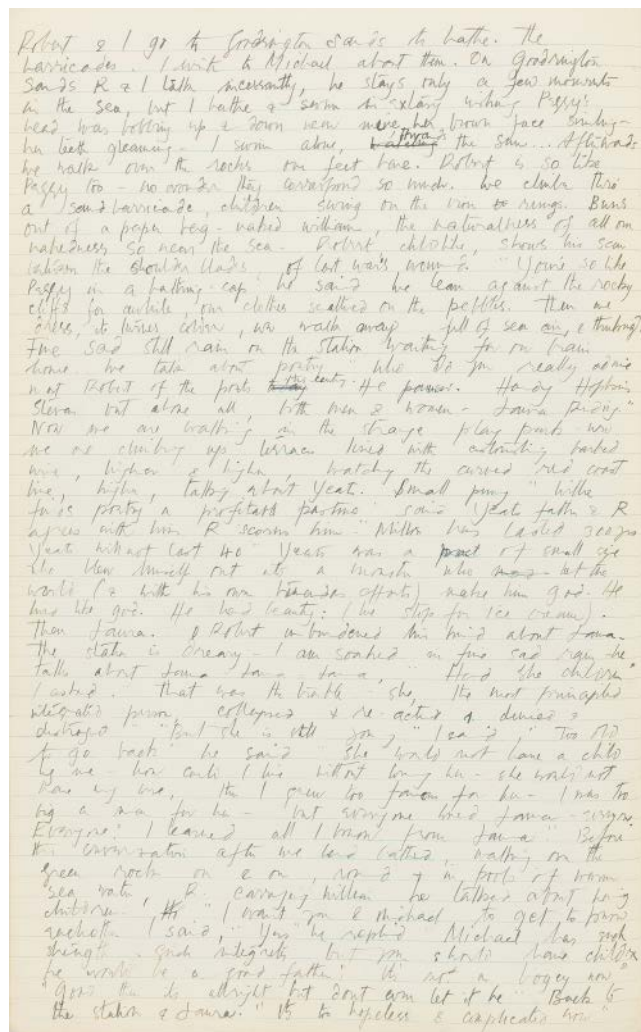 Robert & I go to Goodrington Sands to bathe. The
barricades. I write to Michael about them. On Goodrington
Sands R & I talk incessantly, he stays only a few moments
in the sea, but I bathe & swim in wishing Peggy's
head was bobbing up & down near mine, her brown face smiling –
her teeth gleaming – I swim alone, the sun... Afterwards
we walk over the rocks our feet bare. Robert is so like
Peggy too – no wonder they correspond so much. We climb thro'
a sand barricade, children swing on the iron rings. Buns
out of a paper bag – naked William, the naturalness of all our
nakedness so near the sea. Robert, childlike, shows his scar
between the shoulder blades, of last war's wound. "You're so like
Peggy in a bathing-cap" he said we lean against the rocky
cliffs for awhile, our clothes scattered on the pebbles. Then we
dress, we walk away full of sea air,
Fine sad still rain on the station waiting for our train
home we talk about poetry who do you really admire
most Robert of the poets He pauses. Hardy Hopkins
but above all, both men & women – Laura Riding"
Now we are walking in the strange play park – now
we are climbing up terraces lined with barbed
wire, higher & higher, watching the curved red coast
line, higher, talking about Yeats. Small "Willie
finds poetry a profitable pastime" said Yeats father & R
agrees with him R scorns him – "Milton has lasted 300 yrs
Yeats will not last 40" Yeats was a poet of small size
who blew himself out into a monster who let the
world (& with his own efforts) make him god. He
was like god. He had beauty: (We stop for ice cream).
Then Laura. Robert unburdened his mind about Laura.
The station is dreary – I am soaked in fine sad rain he
talks about Laura – Laura – Laura, "Had she children"
I asked. That was the trouble – she, the most principled
integrated person, collapsed & re-acted & denied &
destroyed "But she is still young" I said, "Too old
to go back" he said – she would not have a child
by me – how could I live without loving her – she would not
have my love, then I grew too famous for her – I was too
big a man for her – but everyone loved Laura – everyone.
Everyone! I learned all I know from Laura" Before
this conversation after we had bathed, walking on the
green rocks on & on, in pools of warm
sea water, R. carrying William he talked about having
children "I want you & Michael to get to know
each other I said, "Yes" he replied Michael has such
strength. Such integrity but you should have children
he would be a good father. It's not a bogey now"
"Good then it's allright but don't ever let it be" Back to
the station & Laura. "It's so hopeless & complicated now"